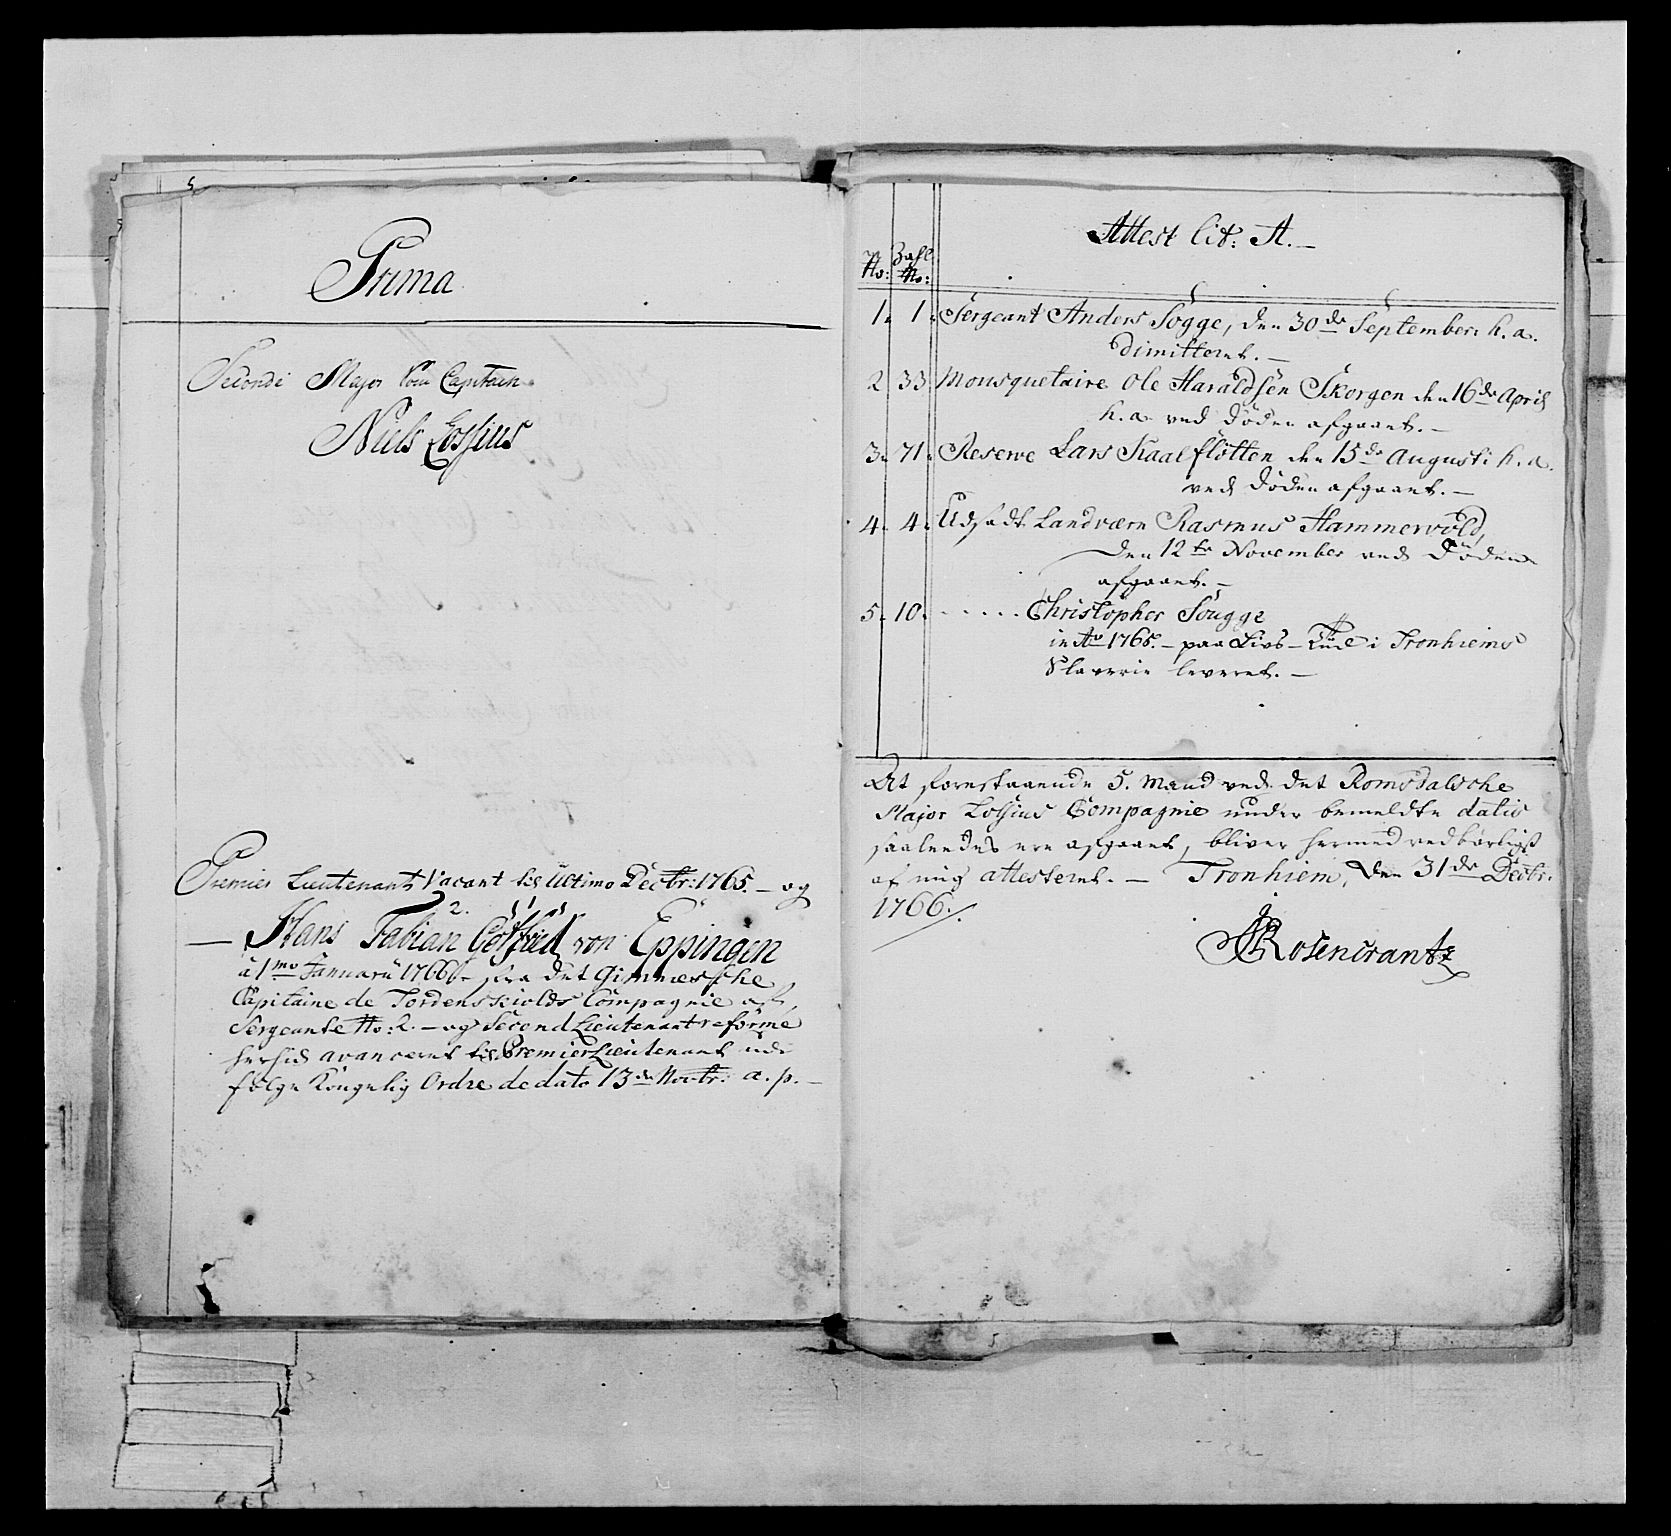 Prima
Secondi Major som Capitain
Niels Lossius
Premier Lieutenants Vacant til Ultimo Decbr: 1765. – og
2.
— Hans Fabian Gotfried von Eppingen
à 1mo Januarii 1766 – fra det Gimnæsche
Capitaine de Tordenskiolds Compagnie af
Sergeante No: 2. – og Second Lieutenant reformé
hertil avanceret til Premier Lieutenant udi
følge Kongelig Ordre de dato 13de Novbr: a. p. –
Attest Lit: A. –
No: Zahl No:
1. 1. Sergeant Anders Sogge, den 30de September h. a.
dimitteret. –
2 33. Mousquetaire Ole Haraldsen Skorgen den 16de April
h. a. ved Døden afgaaet. –
3. 71. Reserve Lars Kaalflotten den 15de Augusti h. a.
ved Døden afgaaet. –
4. 4. Udsadt Landværn Rasmus Hammervold,
den 12te November ved Døden
afgaaet. –
5. 10. . . . . . Christopher Sougge
in Ao 1765. – paa Livs-Tiid i Tronhiems
Slaverie leveret. –
At forestaaende 5. Mand ved det Romsdalsche
Major Lossius Compagnie under bemeldte datis
saaledes ere afgaaet, bliver hermed vedbørligst
af mig attesteret. – Tronhiem, den 31de Decbr.
1766.
Rosencrantz
5